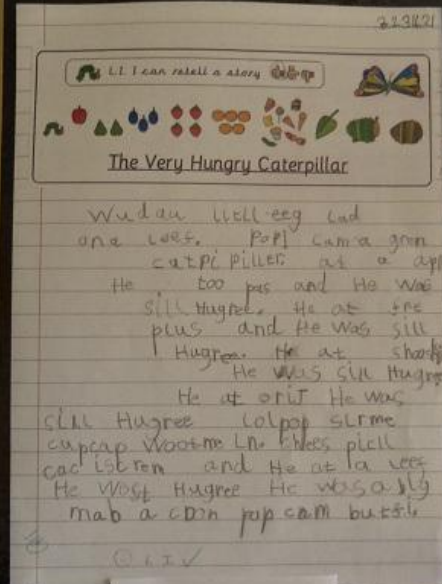 22.3.21
L.I. I can retell a story
The Very Hungry Caterpillar
Wudau litll eeg lad
ona leef. Pop! cam a gren
catpi piller. at a apl
He too pes and He was
sill Hugree. He at tre
plus and He was sill
Hugree. He at
He was sill Hugree
He at orij He was
sill Hugree lolpop
cupcap chees picll
and He at a leef
He Hugree He was a big
mab a coon pop cam butfl
L.I ✓